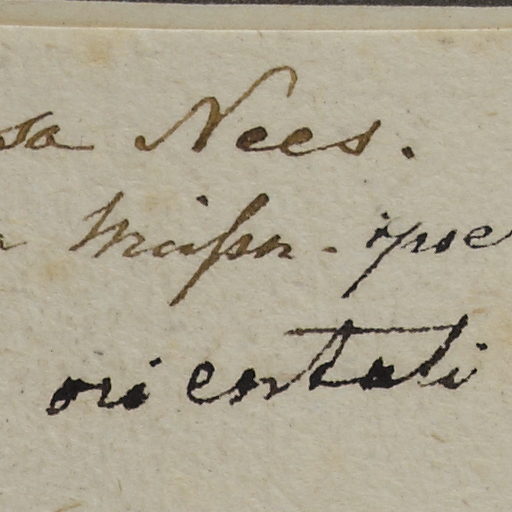 sa Nees.
Meissn. ipse
orientali